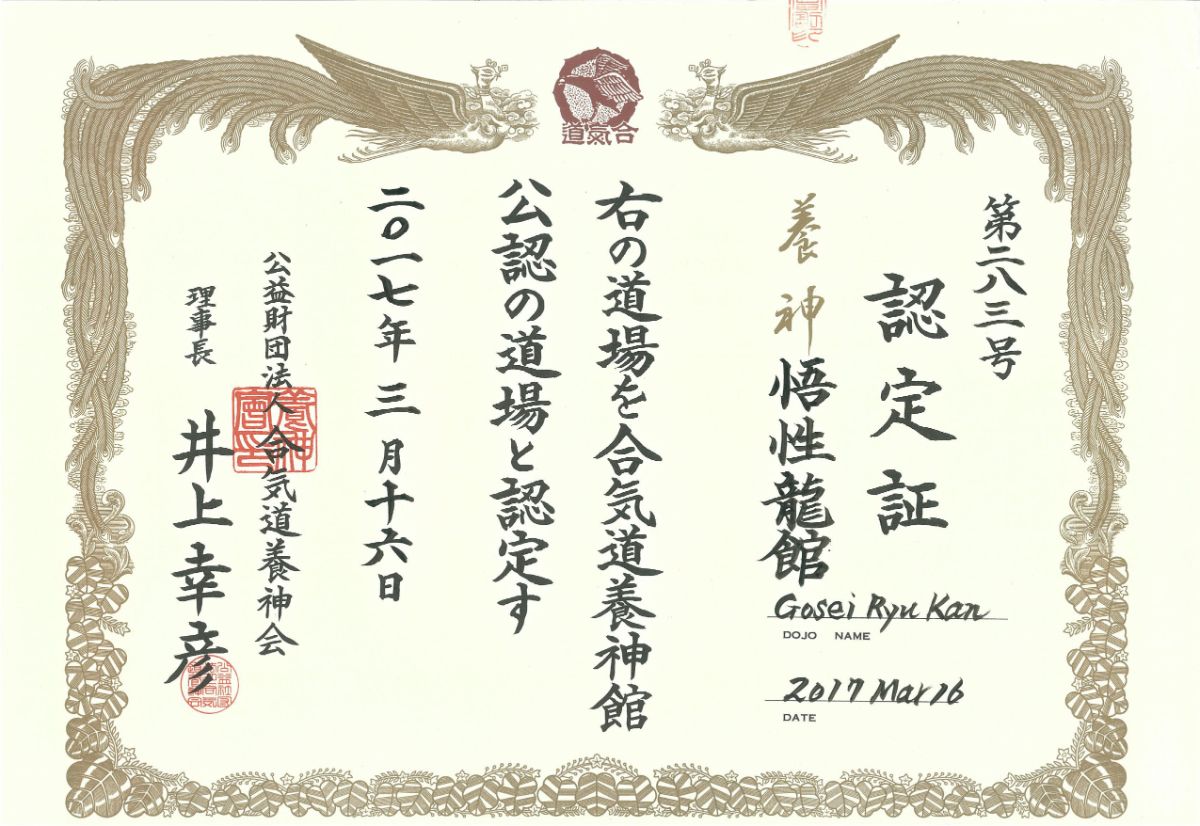 合氣道
第二八三号
認定証
養神 悟性龍館
Gosei Ryu Kan
DOJO NAME
2017 Mar 16
DATE
右の道場を合気道養神館
公認の道場と認定す
二〇一七年三月十六日
公益財団法人合気道養神会
理事長 井上幸彦
養神會印